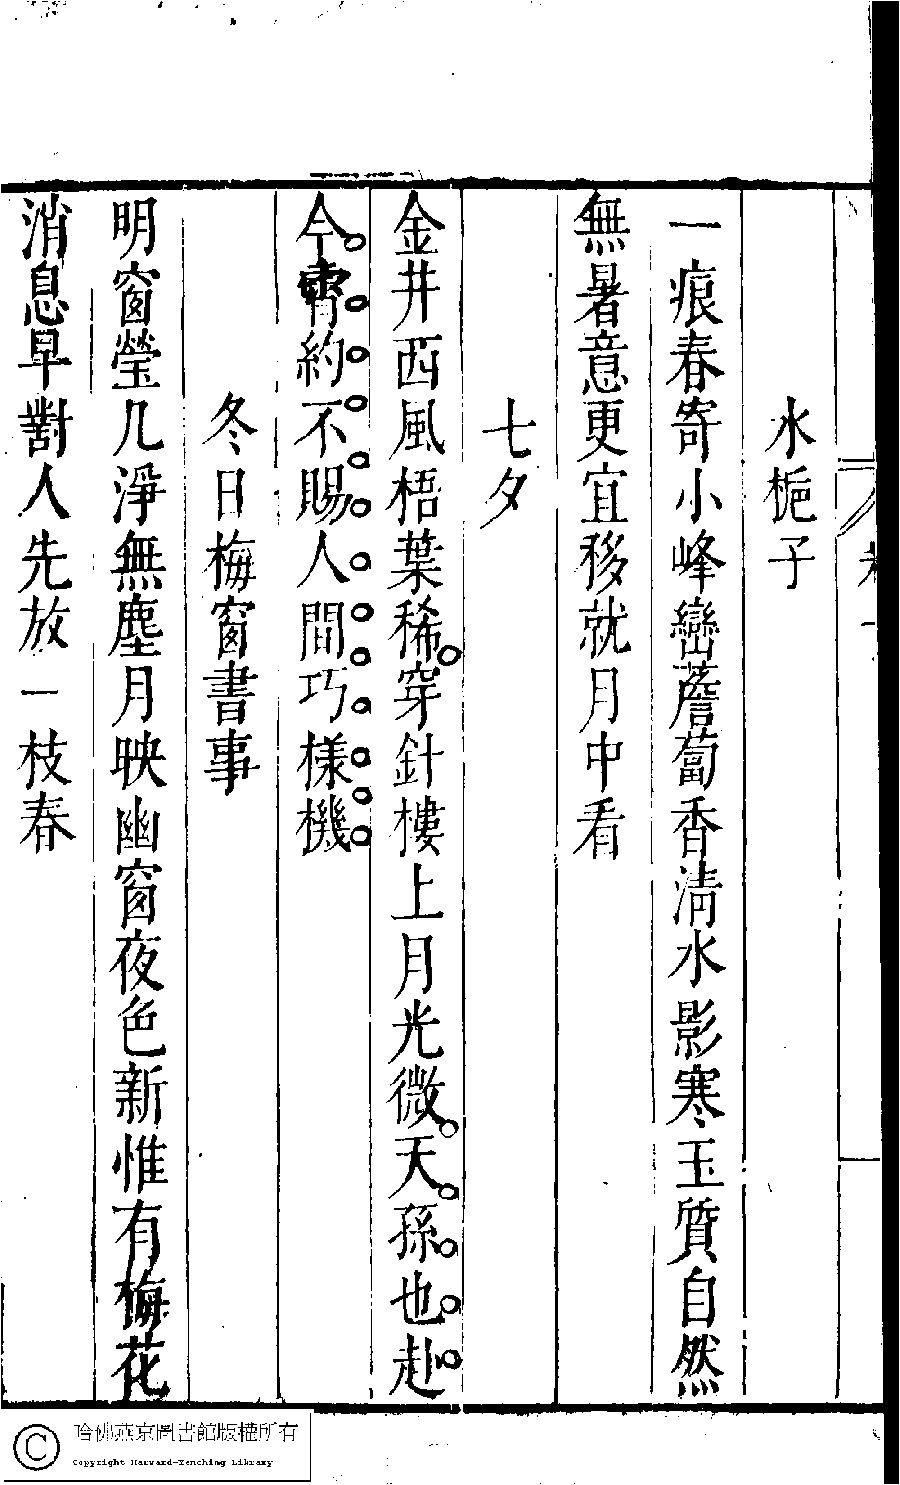 水梔子
一痕春寄小峰巒薝蔔香清水影寒玉質自然
無暑意更宜移就月中看
七夕
金井西風梧葉稀穿針樓上月光微天孫也赴
今宵約不賜人間巧樣機
冬日梅窗書事
明窗瑩几淨無塵月映幽窗夜色新惟有梅花
消息早對人先放一枝春
哈佛燕京圖書館版權所有
Copyright Harvard-Yenching Library